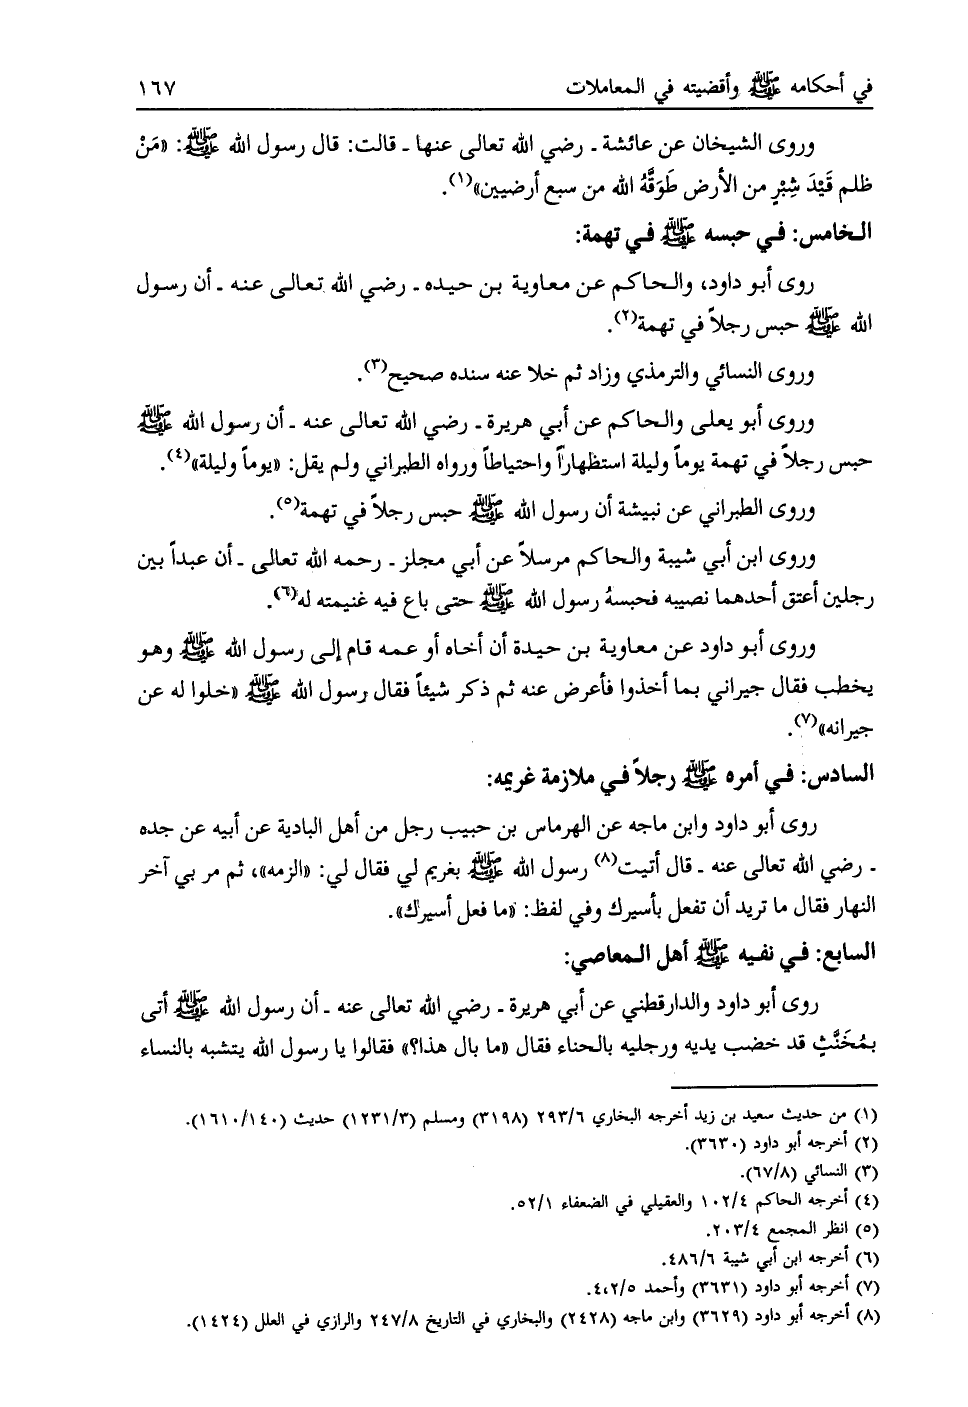 في أحكامه ﷺ وأقضيته في المعاملات ١٦٧
وروى الشيخان عن عائشة ـ رضي الله تعالى عنها ـ قالت: قال رسول الله ﷺ: «مَنْ
ظلم قَيْدَ شِبْرٍ من الأرض طَوَقَّهُ الله من سبع أرضيين»(١).
الخامس: في حبسه ﷺ في تهمة:
روى أبو داود، والحاكم عن معاوية بن حيده ـ رضي الله تعالى عنه ـ أن رسول
الله ﷺ حبس رجلاً في تهمة(٢).
وروى النسائي والترمذي وزاد ثم خلا عنه سنده صحيح(٣).
وروى أبو يعلى والحاكم عن أبي هريرة ـ رضي الله تعالى عنه ـ أن رسول الله ﷺ
حبس رجلاً في تهمة يوماً وليلة استظهاراً واحتياطاً ورواه الطبراني ولم يقل: «يوماً وليلة»(٤).
وروى الطبراني عن نبيشة أن رسول الله ﷺ حبس رجلاً في تهمة(٥).
وروى ابن أبي شيبة والحاكم مرسلاً عن أبي مجلز ـ رحمه الله تعالى ـ أن عبداً بين
رجلين أعتق أحدهما نصيبه فحبسهُ رسول الله ﷺ حتى باع فيه غنيمته له(٦).
وروى أبو داود عن معاوية بن حيدة أن أخاه أو عمه قام إلى رسول الله ﷺ وهو
يخطب فقال جيراني بما أخذوا فأعرض عنه ثم ذكر شيئاً فقال رسول الله ﷺ «خلوا له عن
جيرانه»(٧).
السادس: في أمره ﷺ رجلاً في ملازمة غريمه:
روى أبو داود وابن ماجه عن الهرماس بن حبيب رجل من أهل البادية عن أبيه عن جده
ـ رضي الله تعالى عنه ـ قال أتيت(٨) رسول الله ﷺ بغريم لي فقال لي: «الزمه»، ثم مر بي آخر
النهار فقال ما تريد أن تفعل بأسيرك وفي لفظ: «ما فعل أسيرك».
السابع: في نفيه ﷺ أهل المعاصي:
روى أبو داود والدارقطني عن أبي هريرة ـ رضي الله تعالى عنه ـ أن رسول الله ﷺ أتى
بمُخَنَّثٍ قد خضب يديه ورجليه بالحناء فقال «ما بال هذا؟» فقالوا يا رسول الله يتشبه بالنساء
(١) من حديث سعيد بن زيد أخرجه البخاري ٢٩٣/٦ (٣١٩٨) ومسلم (١٢٣١/٣) حديث (١٦١٠/١٤٠).
(٢) أخرجه أبو داود (٣٦٣٠).
(٣) النسائي (٦٧/٨).
(٤) أخرجه الحاكم ١٠٢/٤ والعقيلي في الضعفاء ٥٢/١.
(٥) انظر المجمع ٢٠٣/٤.
(٦) أخرجه ابن أبي شيبة ٤٨٦/٦.
(٧) أخرجه أبو داود (٣٦٣١) وأحمد ٤،٢/٥.
(٨) أخرجه أبو داود (٣٦٢٩) وابن ماجه (٢٤٢٨) والبخاري في التاريخ ٢٤٧/٨ والرازي في العلل (١٤٢٤).